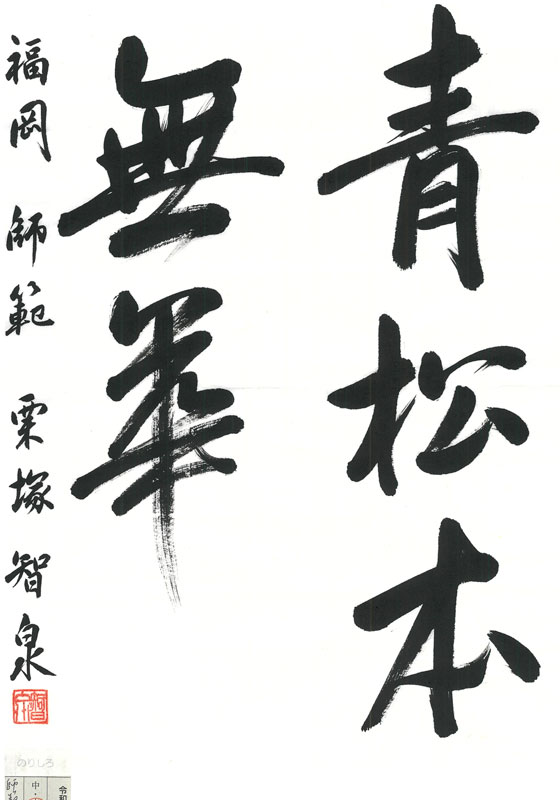 青松本
無華
福岡 師範 栗塚智泉
智泉
のりしろ
令和
中・
師範